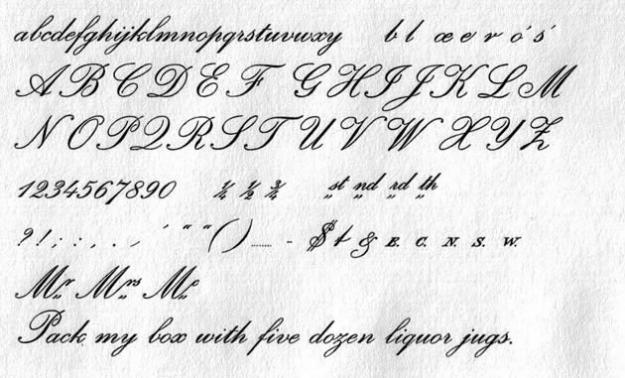 abcdefghijklmnopqrstuvwxy b l æ e r ó s'
A B C D E F G H I J K L M
N O P Q R S T U V W X Y Z
1234567890 ¼ ½ ¾ st nd rd th
? ! ; : , . , ´ “ “ ( ) ........ - $ & E. C. N. S. W.
Mr Mrs Me
Pack my box with five dozen liquor jugs.